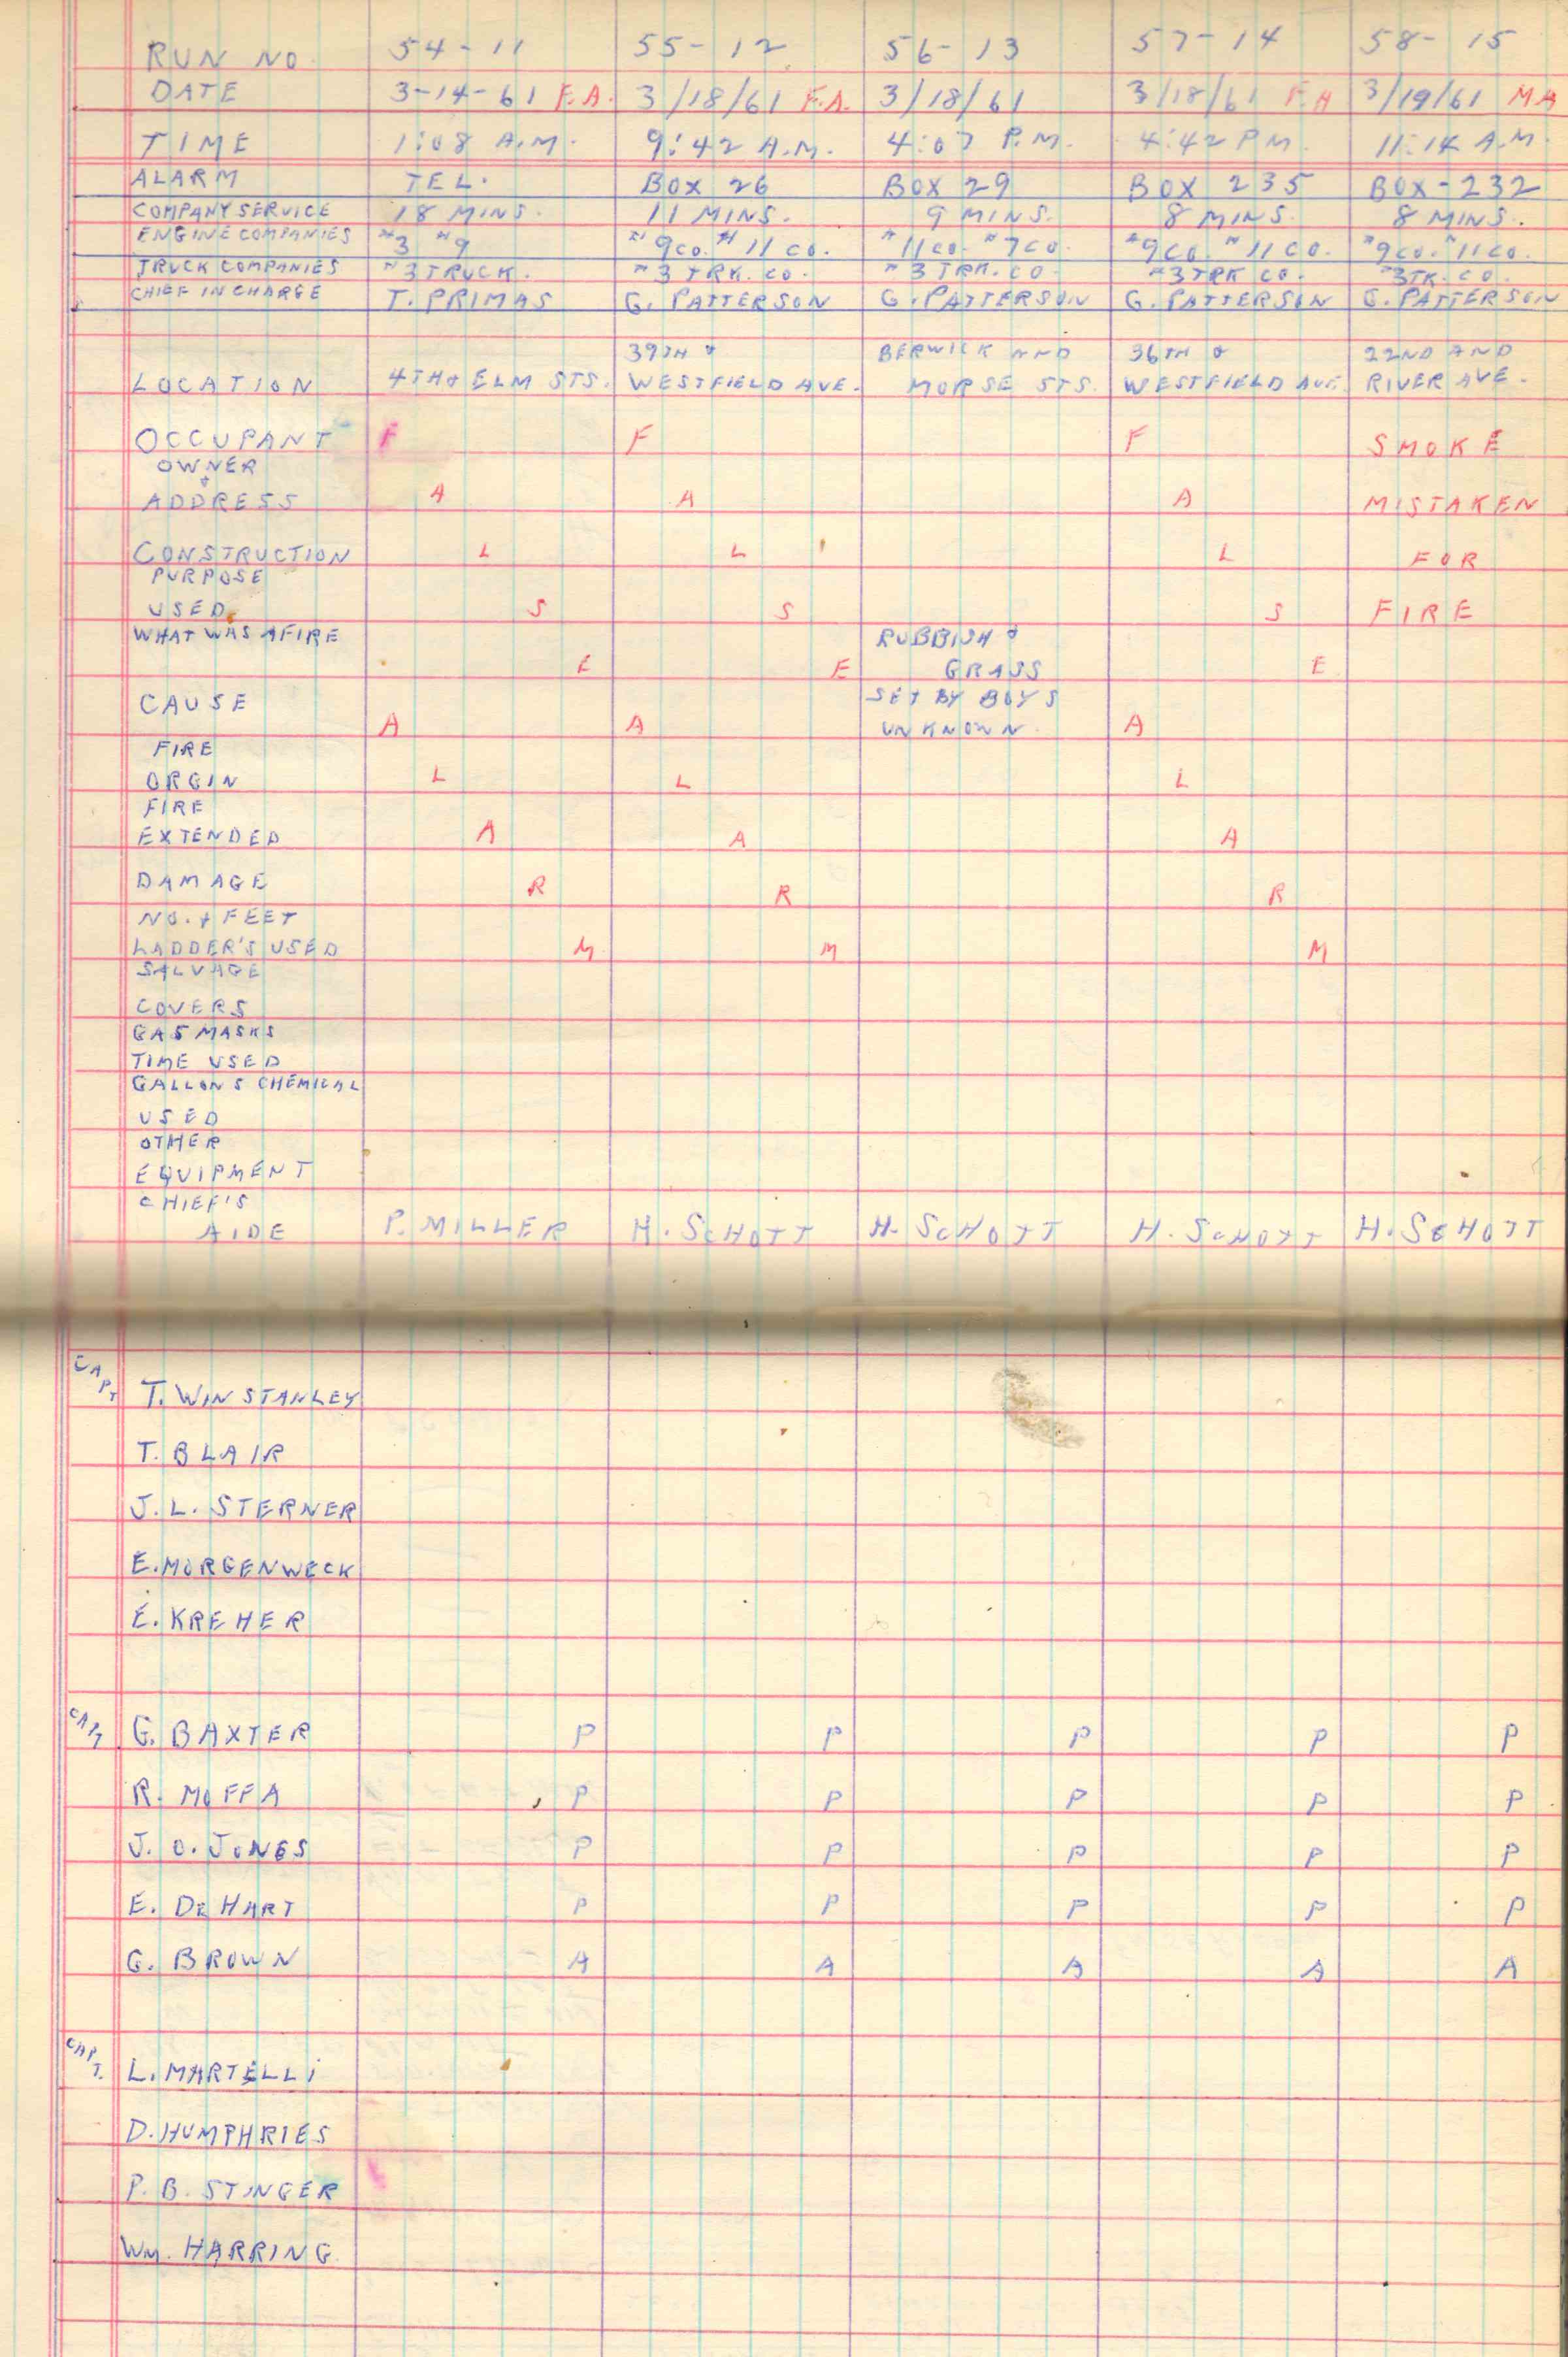 RUN NO. 54-11 55-12 56-13 57-14 58-15
DATE 3-14-61 F.A. 3/18/61 F.A. 3/18/61 3/18/61 F.A 3/19/61 MA
TIME 1:08 A.M. 9:42 A.M. 4:07 P.M. 4:42 PM. 11:14 A.M.
ALARM TEL. BOX 26 BOX 29 BOX 235 BOX-232
COMPANY SERVICE 18 MINS. 11 MINS. 9 MINS. 8 MINS. 8 MINS.
ENGINE COMPANIES "3 "9 "9CO. "11 CO. "11CO. "7CO. "9CO "11 CO. "9CO. "11CO.
TRUCK COMPANIES "3 TRUCK. "3 TRK. CO. "3 TRK. CO. "3TRK CO. "3TK. CO.
CHIEF IN CHARGE T. PRIMAS G. PATTERSON G. PATTERSON G. PATTERSON G. PATTERSON
39TH & BERWICK AND 36TH & 22ND AND
LOCATION 4TH & ELM STS. WESTFIELD AVE. MORSE STS. WESTFIELD AVE. RIVER AVE.
OCCUPANT F F F SMOKE
OWNER
&
ADDRESS A A A MISTAKEN
CONSTRUCTION L L L FOR
PURPOSE
USED S S S FIRE
WHAT WAS AFIRE RUBBISH &
E E GRASS E
CAUSE SET BY BOYS
A A UNKNOWN. A
FIRE
ORGIN L L L
FIRE
EXTENDED A A A
DAMAGE R R R
NO. & FEET
LADDER'S USED M M M
SALVAGE
COVERS
GAS MASKS
TIME USED
GALLONS CHEMICAL
USED
OTHER
EQUIPMENT
CHIEF'S
AIDE P. MILLER H. SCHOTT H. SCHOTT H. SCHOTT H. SCHOTT
CAPT T. WINSTANLEY
T. BLAIR
J. L. STERNER
E. MORGENWECK
E. KREHER
CAPT G. BAXTER P P P P P
R. MOFFA P P P P P
J. O. JONES P P P P P
E. DEHART P P P P P
G. BROWN A A A A A
CAPT. L. MARTELLI
D. HUMPHRIES
P. B. STINGER
WM. HARRING.